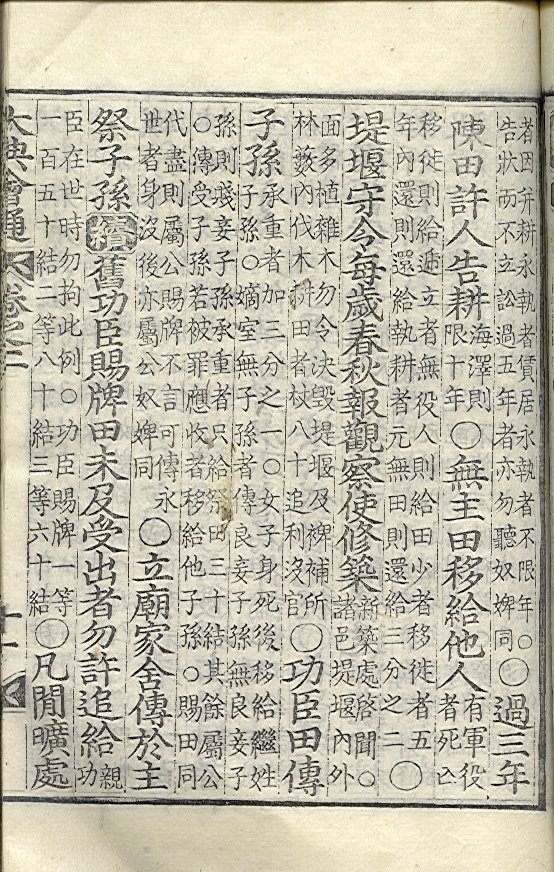 者因幷耕永執者賃居永執者不限年○告狀而不立訟過五年者亦勿聽奴婢同○過三年
陳田許人告耕海澤則限十年○無主田移給他人有軍役者死亡
移徙則給遞立者無役人則給田少者移徙者五年內還則還給執耕者元無田則還給三分之二○
堤堰守令每歲春秋報觀察使修築新築處啓聞○諸邑堤堰內外
面多植雜木勿令決毁堤堰及裨補所林藪內伐木耕田者杖八十追利沒官○功臣田傳
子孫承重者加三分之一○女子身死後移給繼姓子孫○嫡室無子孫者傳良妾子孫無良妾子
孫則賤妾子孫承重者只給祭田三十結其餘屬公○傳受子孫若被罪應收者移給他子孫○賜田同
代盡則屬公賜牌不言可傳永世者身沒後亦屬公奴婢同○立廟家舍傳於主
祭子孫續舊功臣賜牌田未及受出者勿許追給親功
臣在世時勿拘此例○功臣賜牌一等一百五十結二等八十結三等六十結○凡閒曠處
大典會通 卷之二 十一